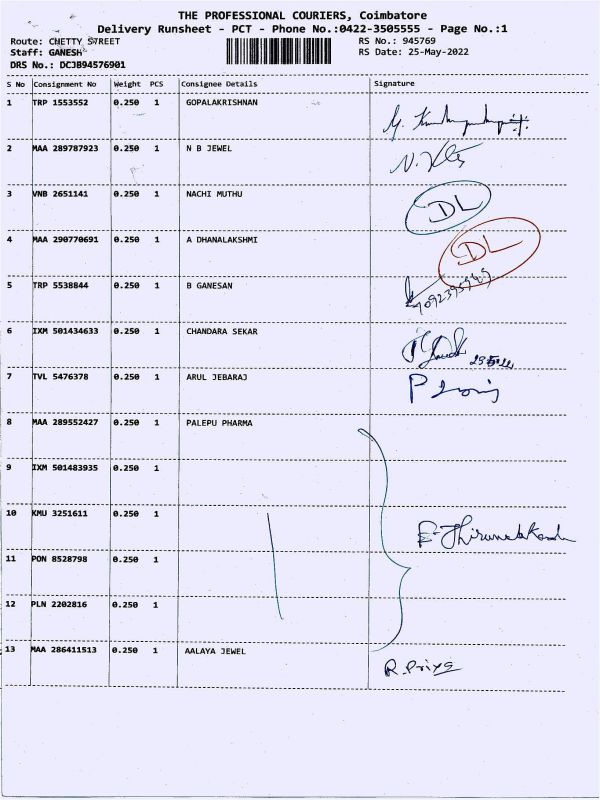 THE PROFESSIONAL COURIERS, Coimbatore
Delivery Runsheet - PCT - Phone No.:0422-3505555 - Page No.:1
Route: CHETTY STREET RS No.: 945769
Staff: GANESH RS Date: 25-May-2022
DRS No.: DCJB94576901
S No Consignment No Weight PCS Consignee Details Signature
1 TRP 1553552 0.250 1 GOPALAKRISHNAN
2 MAA 289787923 0.250 1 N B JEWEL
3 VNB 2651141 0.250 1 NACHI MUTHU DL
4 MAA 290770691 0.250 1 A DHANALAKSHMI DL
5 TRP 5538844 0.250 1 B GANESAN
6 IXM 501434633 0.250 1 CHANDARA SEKAR
7 TVL 5476378 0.250 1 ARUL JEBARAJ
8 MAA 289552427 0.250 1 PALEPU PHARMA
9 IXM 501483935 0.250 1
10 KMU 3251611 0.250 1
11 PON 8528798 0.250 1
12 PLN 2202816 0.250 1
13 MAA 286411513 0.250 1 AALAYA JEWEL R.Priya